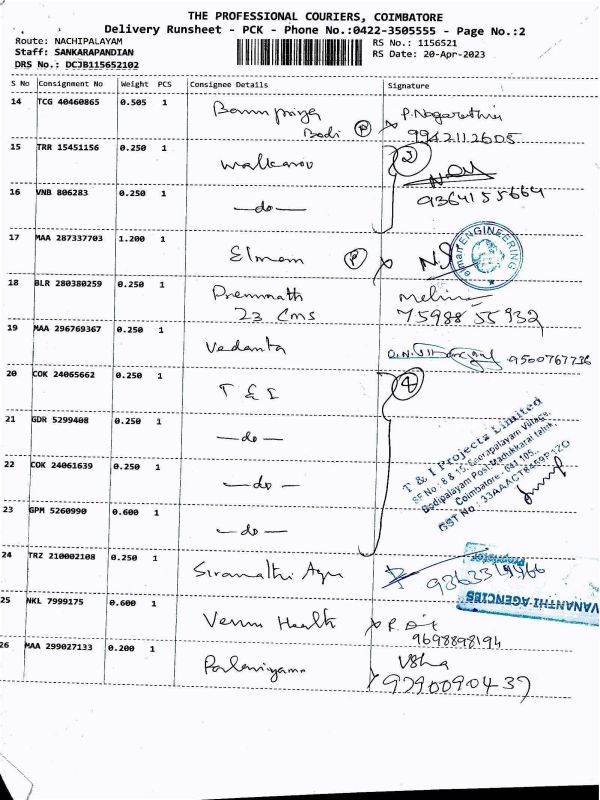 THE PROFESSIONAL COURIERS, COIMBATORE
Delivery Runsheet - PCK - Phone No.:0422-3505555 - Page No.:2
Route: NACHIPALAYAM RS No.: 1156521
Staff: SANKARAPANDIAN RS Date: 20-Apr-2023
DRS No.: DCJB115652102
S No Consignment No Weight PCS Consignee Details Signature
14 TCG 40460865 0.505 1
9942112605
15 TRR 15451156 0.250 1 2
16 VNB 806283 0.250 1 -do- 9364155664
17 MAA 287337703 1.200 1 P
ENGINEERING
18 BLR 280380259 0.250 1 Premnath
23 Cms 75988 55932
19 MAA 296769367 0.250 1 Vedanta 9500767736
20 COK 24065662 0.250 1 T & I 4
21 GDR 5299408 0.250 1 -do-
22 COK 24061639 0.250 1 -do-
23 GPM 5260990 0.600 1 -do-
T & I Projects Limited
SF No : 8 & 15, Seerapalayam Village,
Bodipalayam Post, Madukkarai taluk,
Coimbatore - 641 105.
24 TRZ 210002108 0.250 1
VANANTHI AGENCIES
25 NKL 7999175 0.600 1 Health
9698898194
26 MAA 299027133 0.200 1 Usha